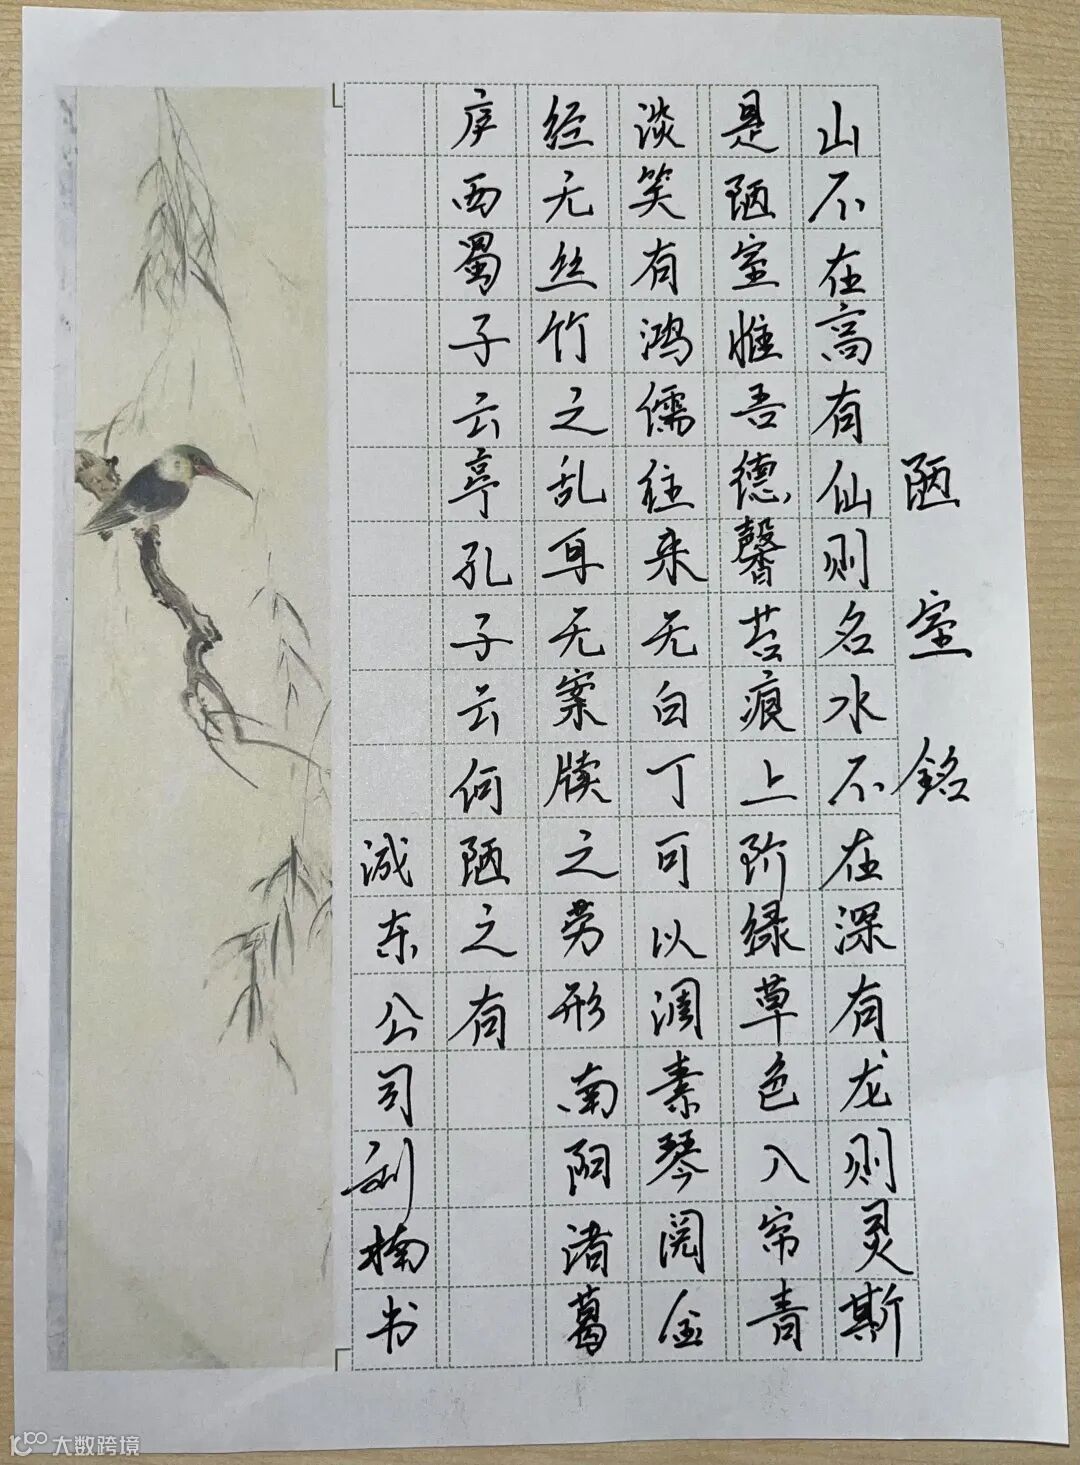 陋室銘
山不在高有仙则名水不在深有龙则灵斯
是陋室惟吾德馨苔痕上阶绿草色入帘青
谈笑有鸿儒往来无白丁可以调素琴阅金
经无丝竹之乱耳无案牍之劳形南阳诸葛
庐西蜀子云亭孔子云何陋之有
东公司刘楠书
大数跨境